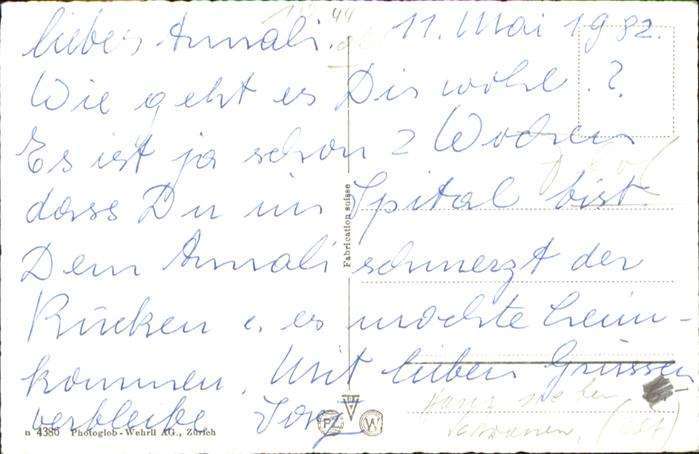 11. Mai 1982.
liebes Annali.
Wie geht es Dir wohl.?
Es ist ja schon 2 Wochen
dass Du im Spital bist.
Dem Annali schmerzt der
Rücken u. es möchte heim-
kommen. Mit lieben Grüssen
verbleibe
Fabrication suisse
n 4386 Photoglob-Wehrli AG., Zürich
PZ W